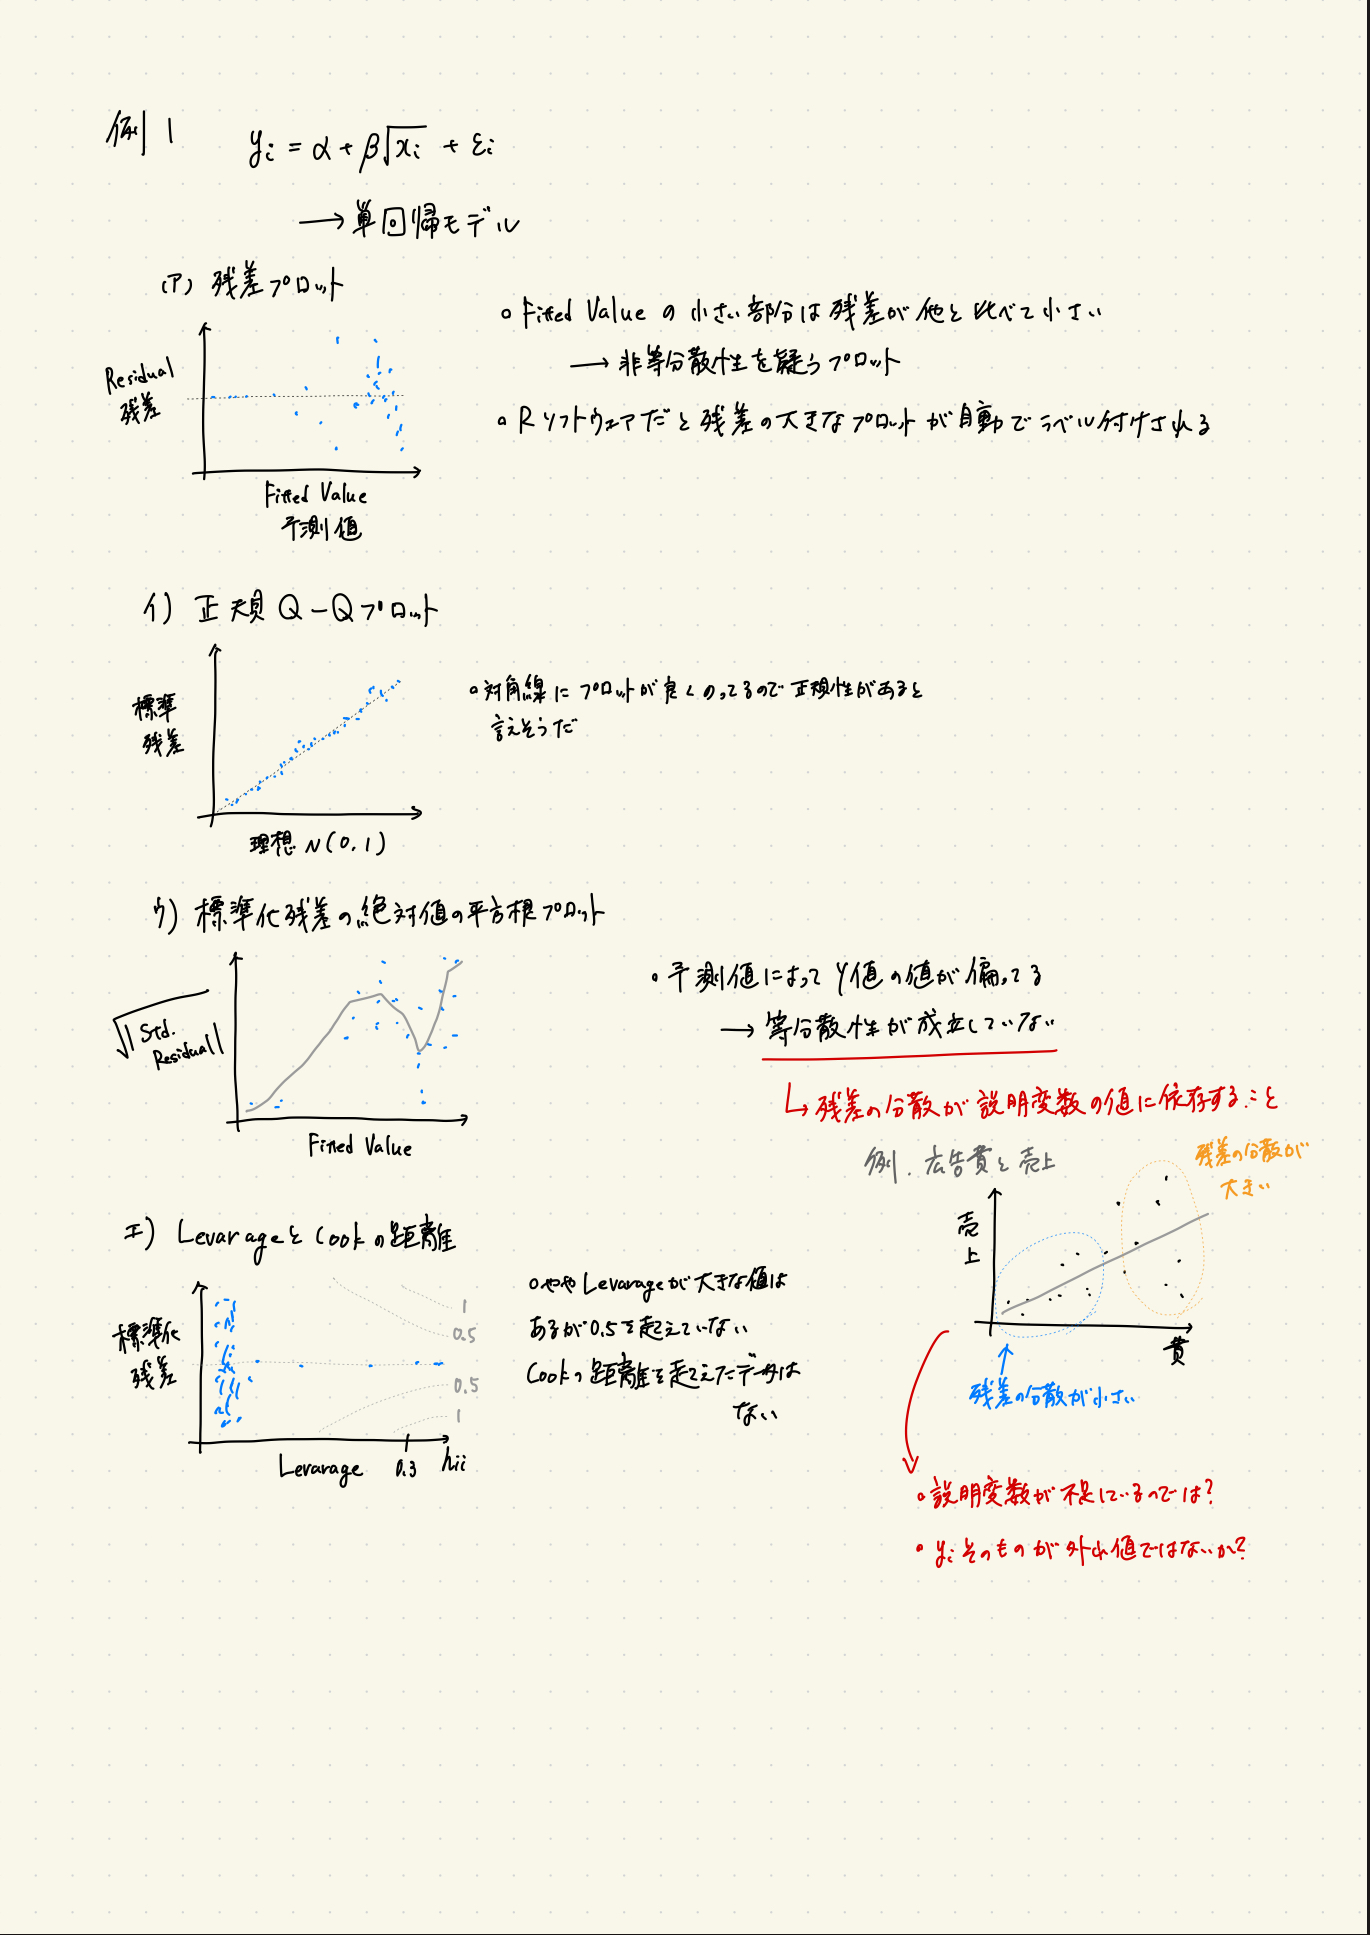 例 1 yi = α + β√xi + εi
→ 単回帰モデル
(ア) 残差プロット
Residual
残差
Fitted Value
予測値
○ Fitted Value の 小さい部分は 残差が 他と 比べて小さい
→ 非等分散性を疑うプロット
○ R ソフトウェアだと残差の大きなプロットが自動でラベル付けされる
イ) 正規 Q-Qプロット
標準
残差
理想 N(0.1)
○対角線に プロットが良くのってるので 正規性があると
言えそうだ
ウ) 標準化残差の絶対値の平方根プロット
√|Std.
Residual|
Fitted Value
○ 予測値によって Y値の値が偏ってる
→ 等分散性が成立していない
↳ 残差の分散が説明変数の値に依存すること
例. 広告費と売上
残差の分散が
大きい
売
上
費
残差の分散が小さい
エ) Levarageと Cookの距離
標準化
残差
1
0.5
0.5
1
Levarage 0.3 hii
○やや Levarageが大きな値は
あるが0.5を超えていない
Cookの距離を超えたデータは
ない
○ 説明変数が不足しているのでは?
○ yi そのものが外れ値ではないか?